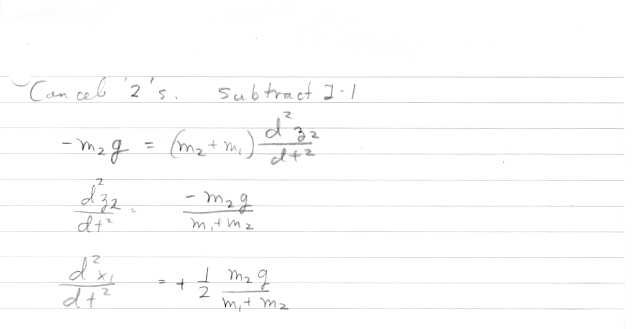 Cancel '2's. Subtract 2-1
-m₂g = (m₂+m₁) d²z₂/dt²
d²z₂/dt² = -m₂g/(m₁+m₂)
d²x₁/dt² = + 1/2 m₂g/(m₁+m₂)